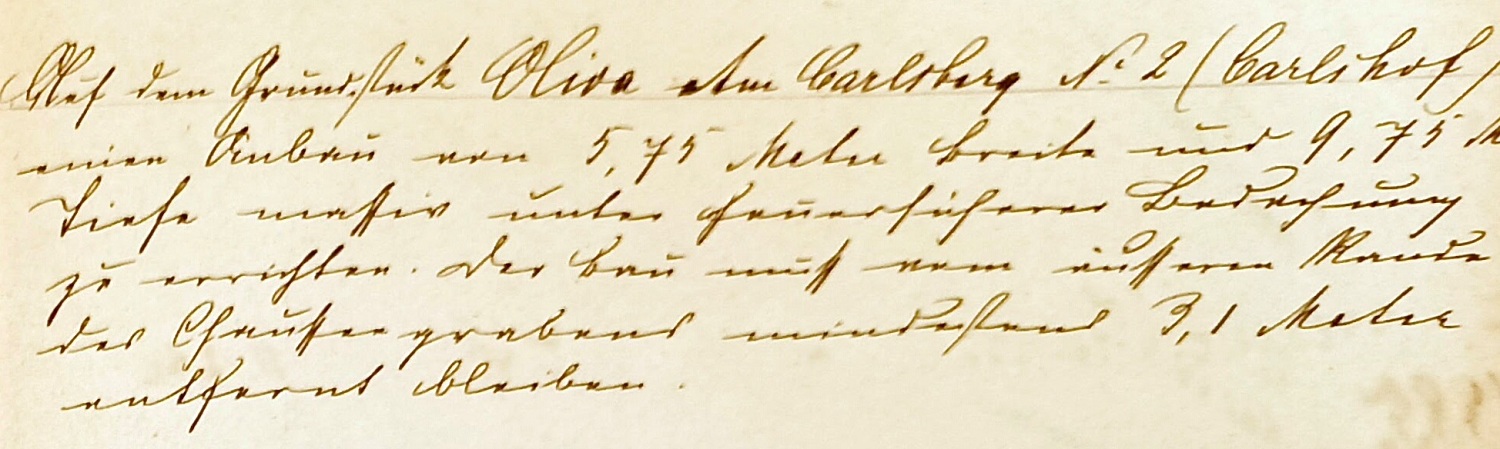 Auf dem Grundstück Oliva Am Carlsberg No 2 (Carlshof)
einen Anbau von 5,75 Meter Breite und 9,75 M
Tiefe massiv unter feuersicherer Bedachung
zu errichten. Der Bau muß vom äusseren Rande
des Chausseegrabens mindestens 3,1 Meter
entfernt bleiben.